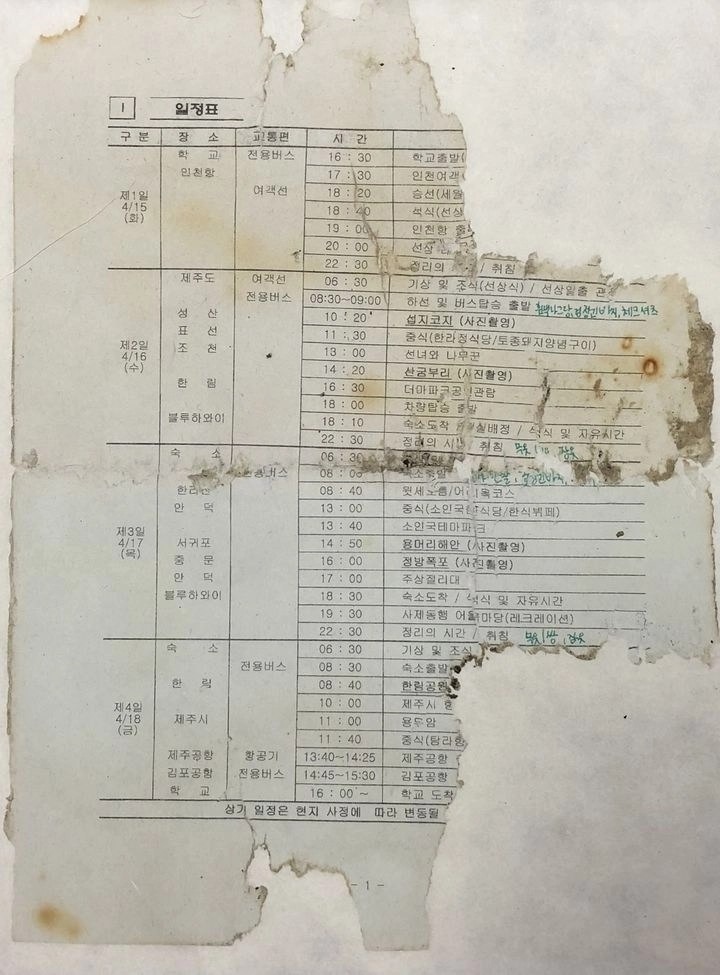 I 일정표
구 분 장 소 교통편 시 간
학 교 전용버스 16 : 30 학교출발(
인천항 17 : 30 인천여객
여객선 18 : 20 승선(세월
제1일 4/15 (화) 18 : 40 석식(선상
19 : 00 인천항 출
20 : 00 선상
22 : 30 정리의 / 취침
제주도 여객선 06 : 30 기상 및 조식(선상식) / 선상일출
전용버스 08:30~09:00 하선 및 버스탑승 출발
성 산 10 : 20 섭지코지 (사진촬영)
표 선 11 : 30 중식(한라정식당/토종돼지양념구이)
제2일 4/16 (수) 조 천 13 : 00 선녀와 나무꾼
14 : 20 산굼부리 (사진촬영)
한 림 16 : 30 더마파크공연관람
18 : 00 차량탑승 출발
블루하와이 18 : 10 숙소도착 / 실배정 / 석식 및 자유시간
22 : 30 정리의 시 취침 잠옷
숙 소 06 : 30
전용버스 08 : 00 숙소출발
한라산 08 : 40 윗세오름/어 목코스
안 덕 13 : 00 중식(소인국 식당/한식뷔페)
제3일 4/17 (목) 13 : 40 소인국테마파크
서귀포 14 : 50 용머리해안 (사진촬영)
중 문 16 : 00 정방폭포 (사진촬영)
안 덕 17 : 00 주상절리대
블루하와이 18 : 30 숙소도착 / 석식 및 자유시간
19 : 30 사제동행 어울마당(레크레이션)
22 : 30 정리의 시간 / 취침 잠옷
숙 소 06 : 30 기상 및 조식
전용버스 08 : 30 숙소출발
한 림 08 : 40 한림공원
제4일 4/18 (금) 10 : 00 제주시
제주시 11 : 00 용두암
11 : 40 중식(탐라
제주공항 항공기 13:40~14:25 제주공항
김포공항 전용버스 14:45~15:30 김포공항
학 교 16 : 00 ~ 학교 도착
상기 일정은 현지 사정에 따라 변동될
- 1 -